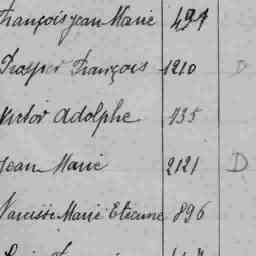 François Jean Marie 494
Prosper François 1210 D
Victor Adolphe 735
Jean Marie 2121 D
Narcisse Marie Etienne 896